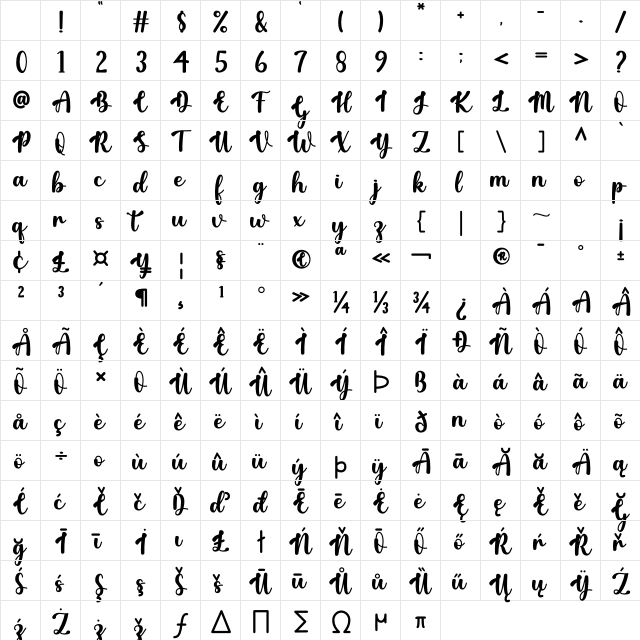 ! " # $ % & ' ( ) * + , - . /
0 1 2 3 4 5 6 7 8 9 : ; < = > ?
@ A B C D E F G H I J K L M N O
P Q R S T U V W X Y Z [ \ ] ^ `
a b c d e f g h i j k l m n o p
q r s t u v w x y z { | } ~ ¡
¢ £ ¤ ¥ ¦ § ¨ © ª « ¬ ® ¯ ° ±
² ³ ´ ¶ ¸ ¹ º » ¼ ⅓ ¾ ¿ À Á Â
Å Ã Ç È É Ê Ë Ì Í Î Ï Ð Ñ Ò Ó Ô
Õ Ö × O Ù Ú Û Ü Ý Þ ß à á â ã ä
å ç è é ê ë ì í î ï ð n ò ó ô õ
ö ÷ o ù ú û ü ý þ ÿ Ā ā Ă ă Ä ą
Ć ć Č č Ď ď đ Ē ē Ė ė Ę ę Ě ě
ğ Ī ī İ ı Ł ł Ń Ň Ō Ő ő Ŕ ŕ Ř ř
Ś ś Ş ş Š š Ū ū Ů ů Ű ű Ų ų Ÿ Ź
ź Ż ż ž ƒ ∆ ∏ ∑ Ω µ π